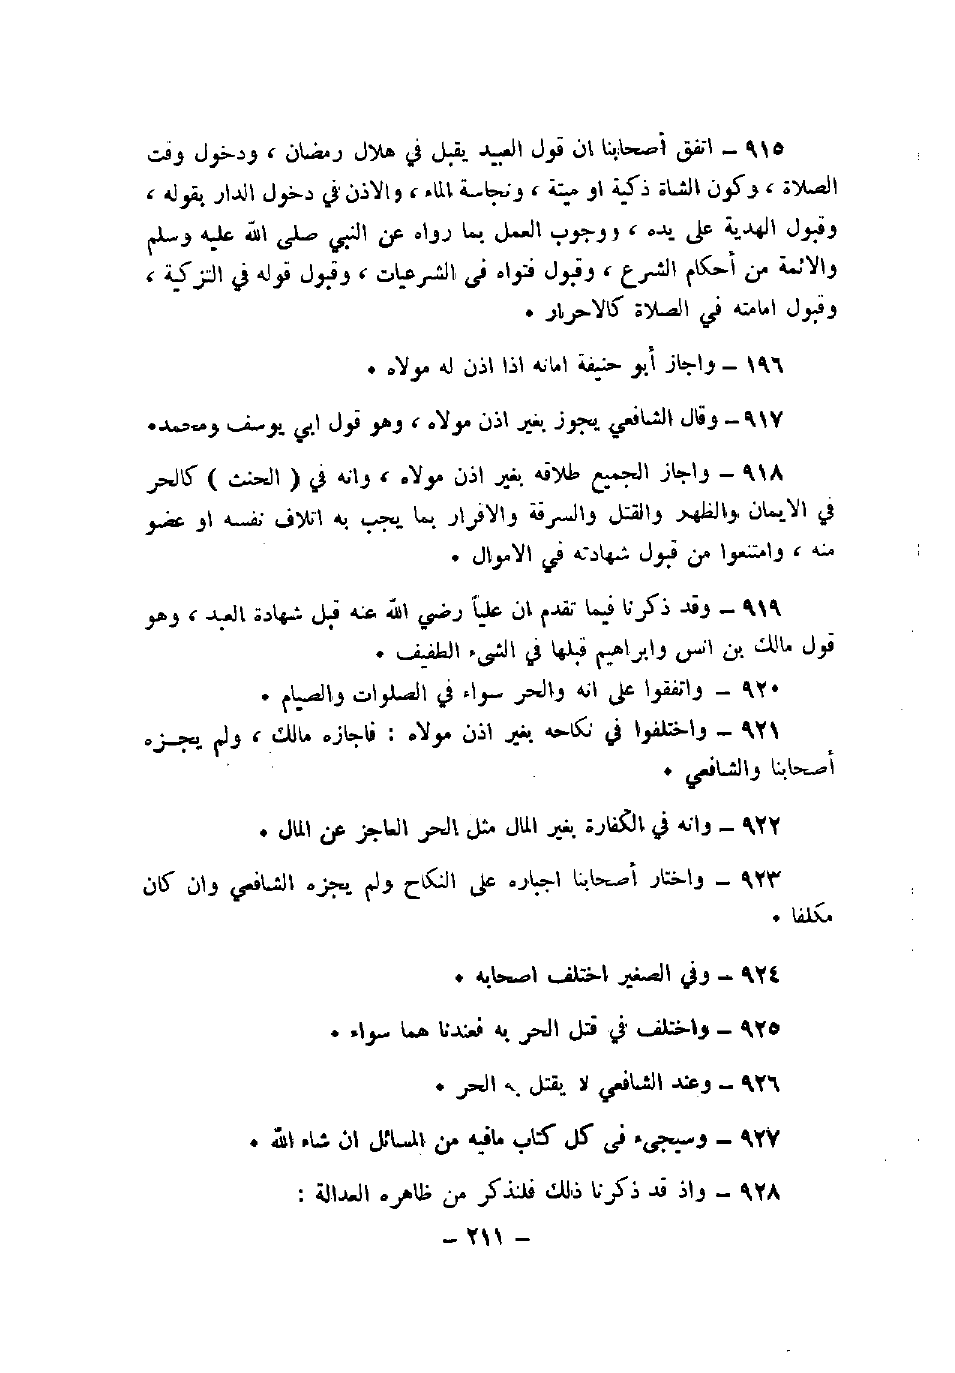 ٩١٥ ـ اتفق أصحابنا ان قول العبيد يقبل في هلال رمضان ، ودخول وقت
الصلاة ، وكون الشاة ذكية او ميتة ، ونجاسة الماء ، والاذن في دخول الدار بقوله ،
وقبول الهدية على يده ، ووجوب العمل بما رواه عن النبي صلى الله عليه وسلم
والائمة من أحكام الشرع ، وقبول فتواه في الشرعيات ، وقبول قوله في التزكية ،
وقبول امامته في الصلاة كالاحرار .
١٩٦ ـ واجاز أبو حنيفة امانه اذا اذن له مولاه .
٩١٧ ـ وقال الشافعي يجوز بغير اذن مولاه ، وهو قول ابي يوسف ومحمد .
٩١٨ ـ واجاز الجميع طلاقه بغير اذن مولاه ، وانه في ( الحنث ) كالحر
في الايمان والظهر والقتل والسرقة والاقرار بما يجب به اتلاف نفسه او عضو
منه ، وامتنعوا من قبول شهادته في الاموال .
٩١٩ ـ وقد ذكرنا فيما تقدم ان علياً رضي الله عنه قبل شهادة العبد ، وهو
قول مالك بن انس وابراهيم قبلها في الشىء الطفيف .
٩٢٠ ـ واتفقوا على انه والحر سواء في الصلوات والصيام .
٩٢١ ـ واختلفوا في نكاحه بغير اذن مولاه : فاجازه مالك ، ولم يجـزه
أصحابنا والشافعي .
٩٢٢ ـ وانه في الكفارة بغير المال مثل الحر العاجز عن المال .
٩٢٣ ـ واختار أصحابنا اجباره على النكاح ولم يجزه الشافعي وان كان
مكلفا .
٩٢٤ ـ وفي الصغير اختلف اصحابه .
٩٢٥ ـ واختلف في قتل الحر به فعندنا هما سواء .
٩٢٦ ـ وعند الشافعي لا يقتل به الحر .
٩٢٧ ـ وسيجىء فى كل كتاب مافيه من المسائل ان شاء الله .
٩٢٨ ـ واذ قد ذكرنا ذلك فلنذكر من ظاهره العدالة :
ـ ٢١١ ـ